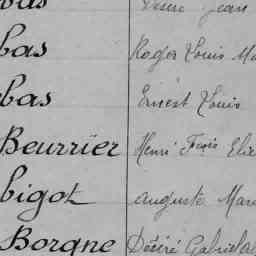 bas Désiré Jean
bas Roger Louis Ma
bas Ernest Louis
Beurrier Henri Frçois Elie
bigot Auguste Mar
Borgne Désiré Gabriel